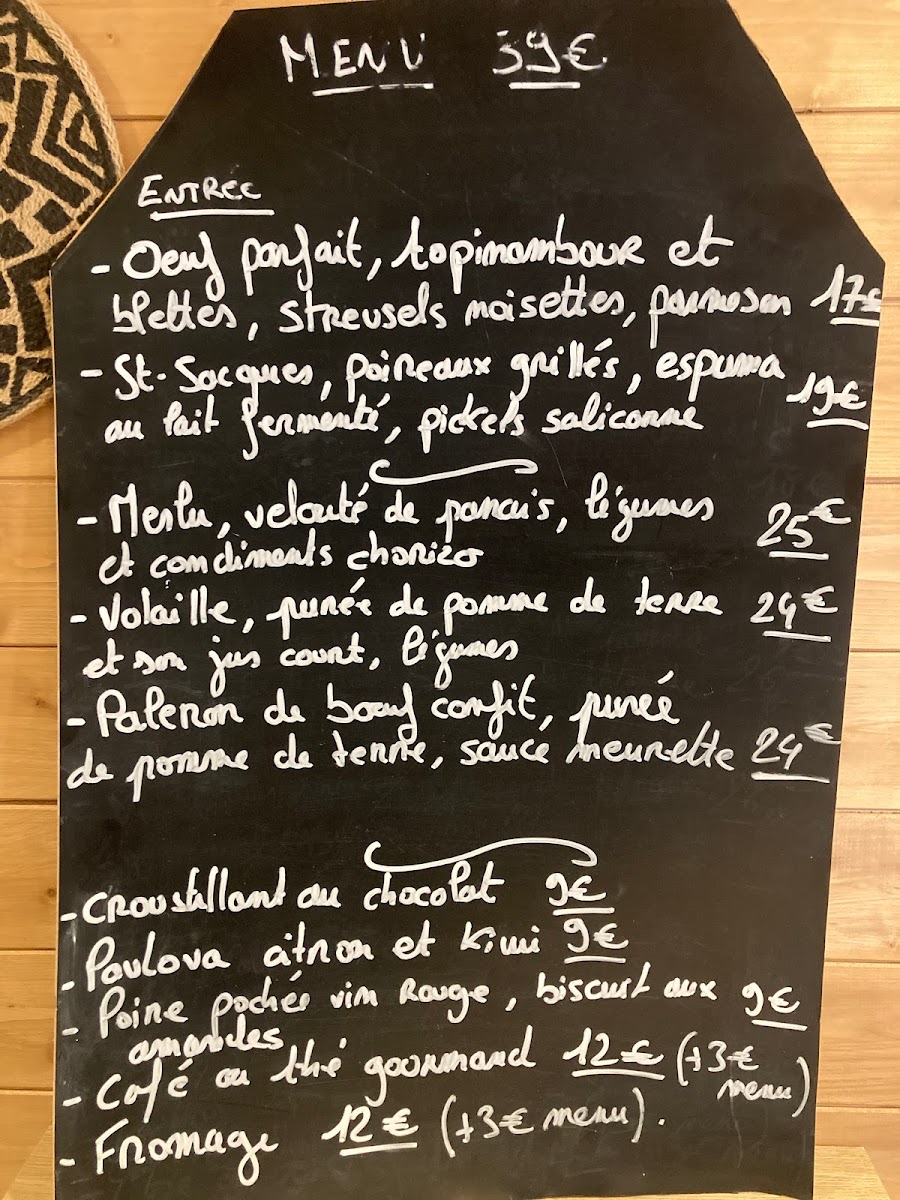 MENU 39€
ENTRÉE
- Oeuf parfait, topinambour et
blettes, streusels noisettes, parmesan 17€
- St-Jacques, poireaux grillés, espuma
au lait fermenté, pickels salicorne 19€
- Merlu, velouté de panais, légumes
et condiments chorizo 25€
- Volaille, purée de pomme de terre 24€
et son jus court, légumes
- Paleron de bœuf confit, purée
de pomme de terre, sauce meurette 24€
- Croustillant au chocolat 9€
- Pavlova citron et kiwi 9€
- Poire pochée vin rouge, biscuit aux 9€
amandes
- Café ou thé gourmand 12€ (+3€
menu)
- Fromage 12€ (+3€ menu).